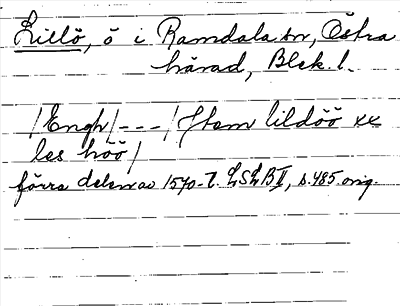 Lillö, ö i Ramdala sn, Östra
härad, Blek. l.
/Engh/---/Jtem lildöö xx
les höö/
förra delen av 1570-t. LSLB II, s. 485. orig.